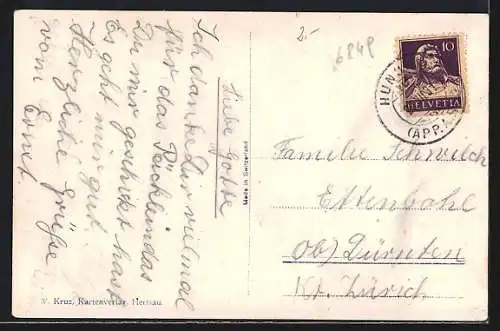 Liebe Gotte
Ich danke Dir vielmal
für das Päcklein das
Du mir geschickt hast
Es geht mir gut
Herzliche Grüße
vom Ernst.
Made in Switzerland
W. Kruz, Kartenverlag, Herisau.
2.-
6848
10
HELVETIA
HUN
(APP.)
Familie Schmilch
Ettenbohl
ob) Dürnten
Kt. Zürich